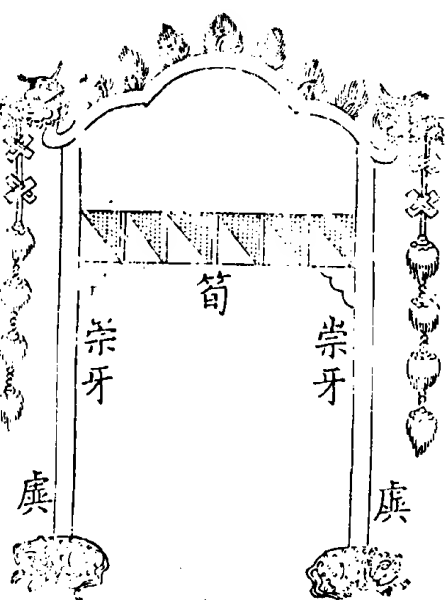 筍
崇牙
崇牙
虡
虡